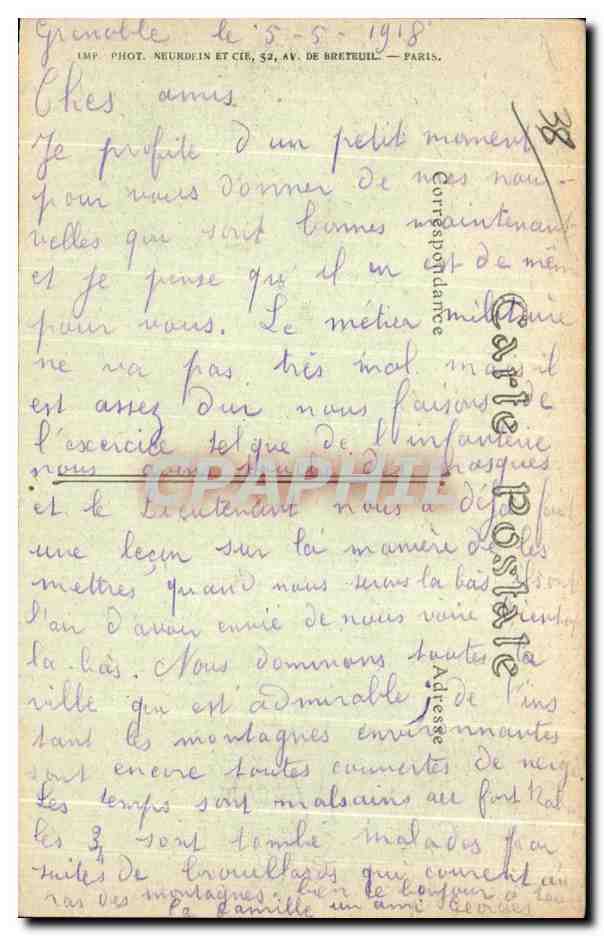 Grenoble le 5-5-1918
IMP. PHOT. NEURDEIN ET CIE, 52, AV. DE BRETEUIL. — PARIS.
38
Ches amis
Je profite d'un petit moment
pour vous donner de mes nou-
velles qui sont bonnes maintenant
et je pense qu'il en est de même
pour vous. Le métier militaire
ne va pas très mal mais il
est assez dur nous faisons de
l'exercice tel que de l'infanterie
nous des masques
et le Lieutenant nous a déjà fait
une leçon sur la manière de les
mettres, quand nous serons la bas ils ont
l'air d'avoir envie de nous voire bientot
la-bas. Nous dominons toutes la
ville qui est admirable, de l'ins
tant les montagnes environnantes
sont encore toutes couvertes de neige
Les temps sont malsains au fort
les 3/4 sont tombé malades par
suites de brouillards qui courent au
ras des montagnes. bien le bonjour a toute
la famille un ami Georges
Correspondance
Carte Postale
Adresse
CPAPHIL